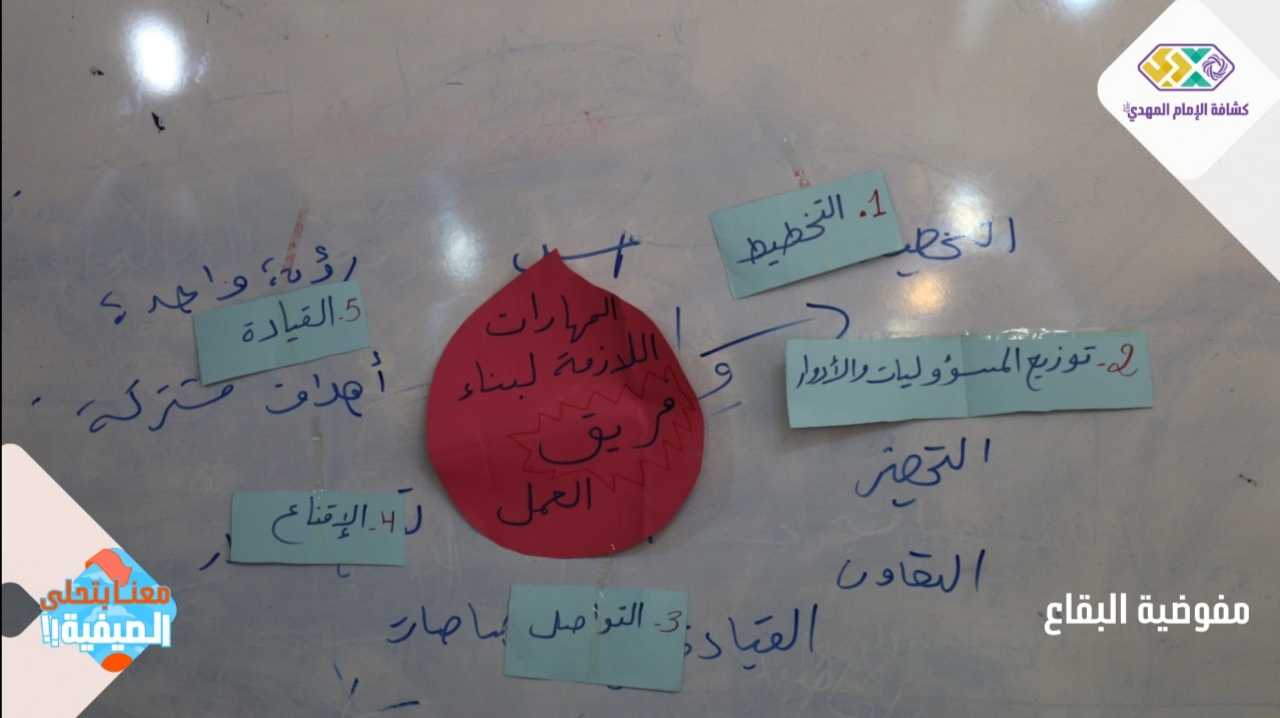 كشافة الإمام المهدي
1. التخطيط
رؤية واحدة
5. القيادة
المهارات
اللازمة لبناء
فريق
العمل
2- توزيع المسؤوليات والأدوار
أهداف مشتركة
التحضير
4- الإقناع
التعاون
3- التواصل
القيادة
معنا بتحلى
الصيفية!!
مفوضية البقاع